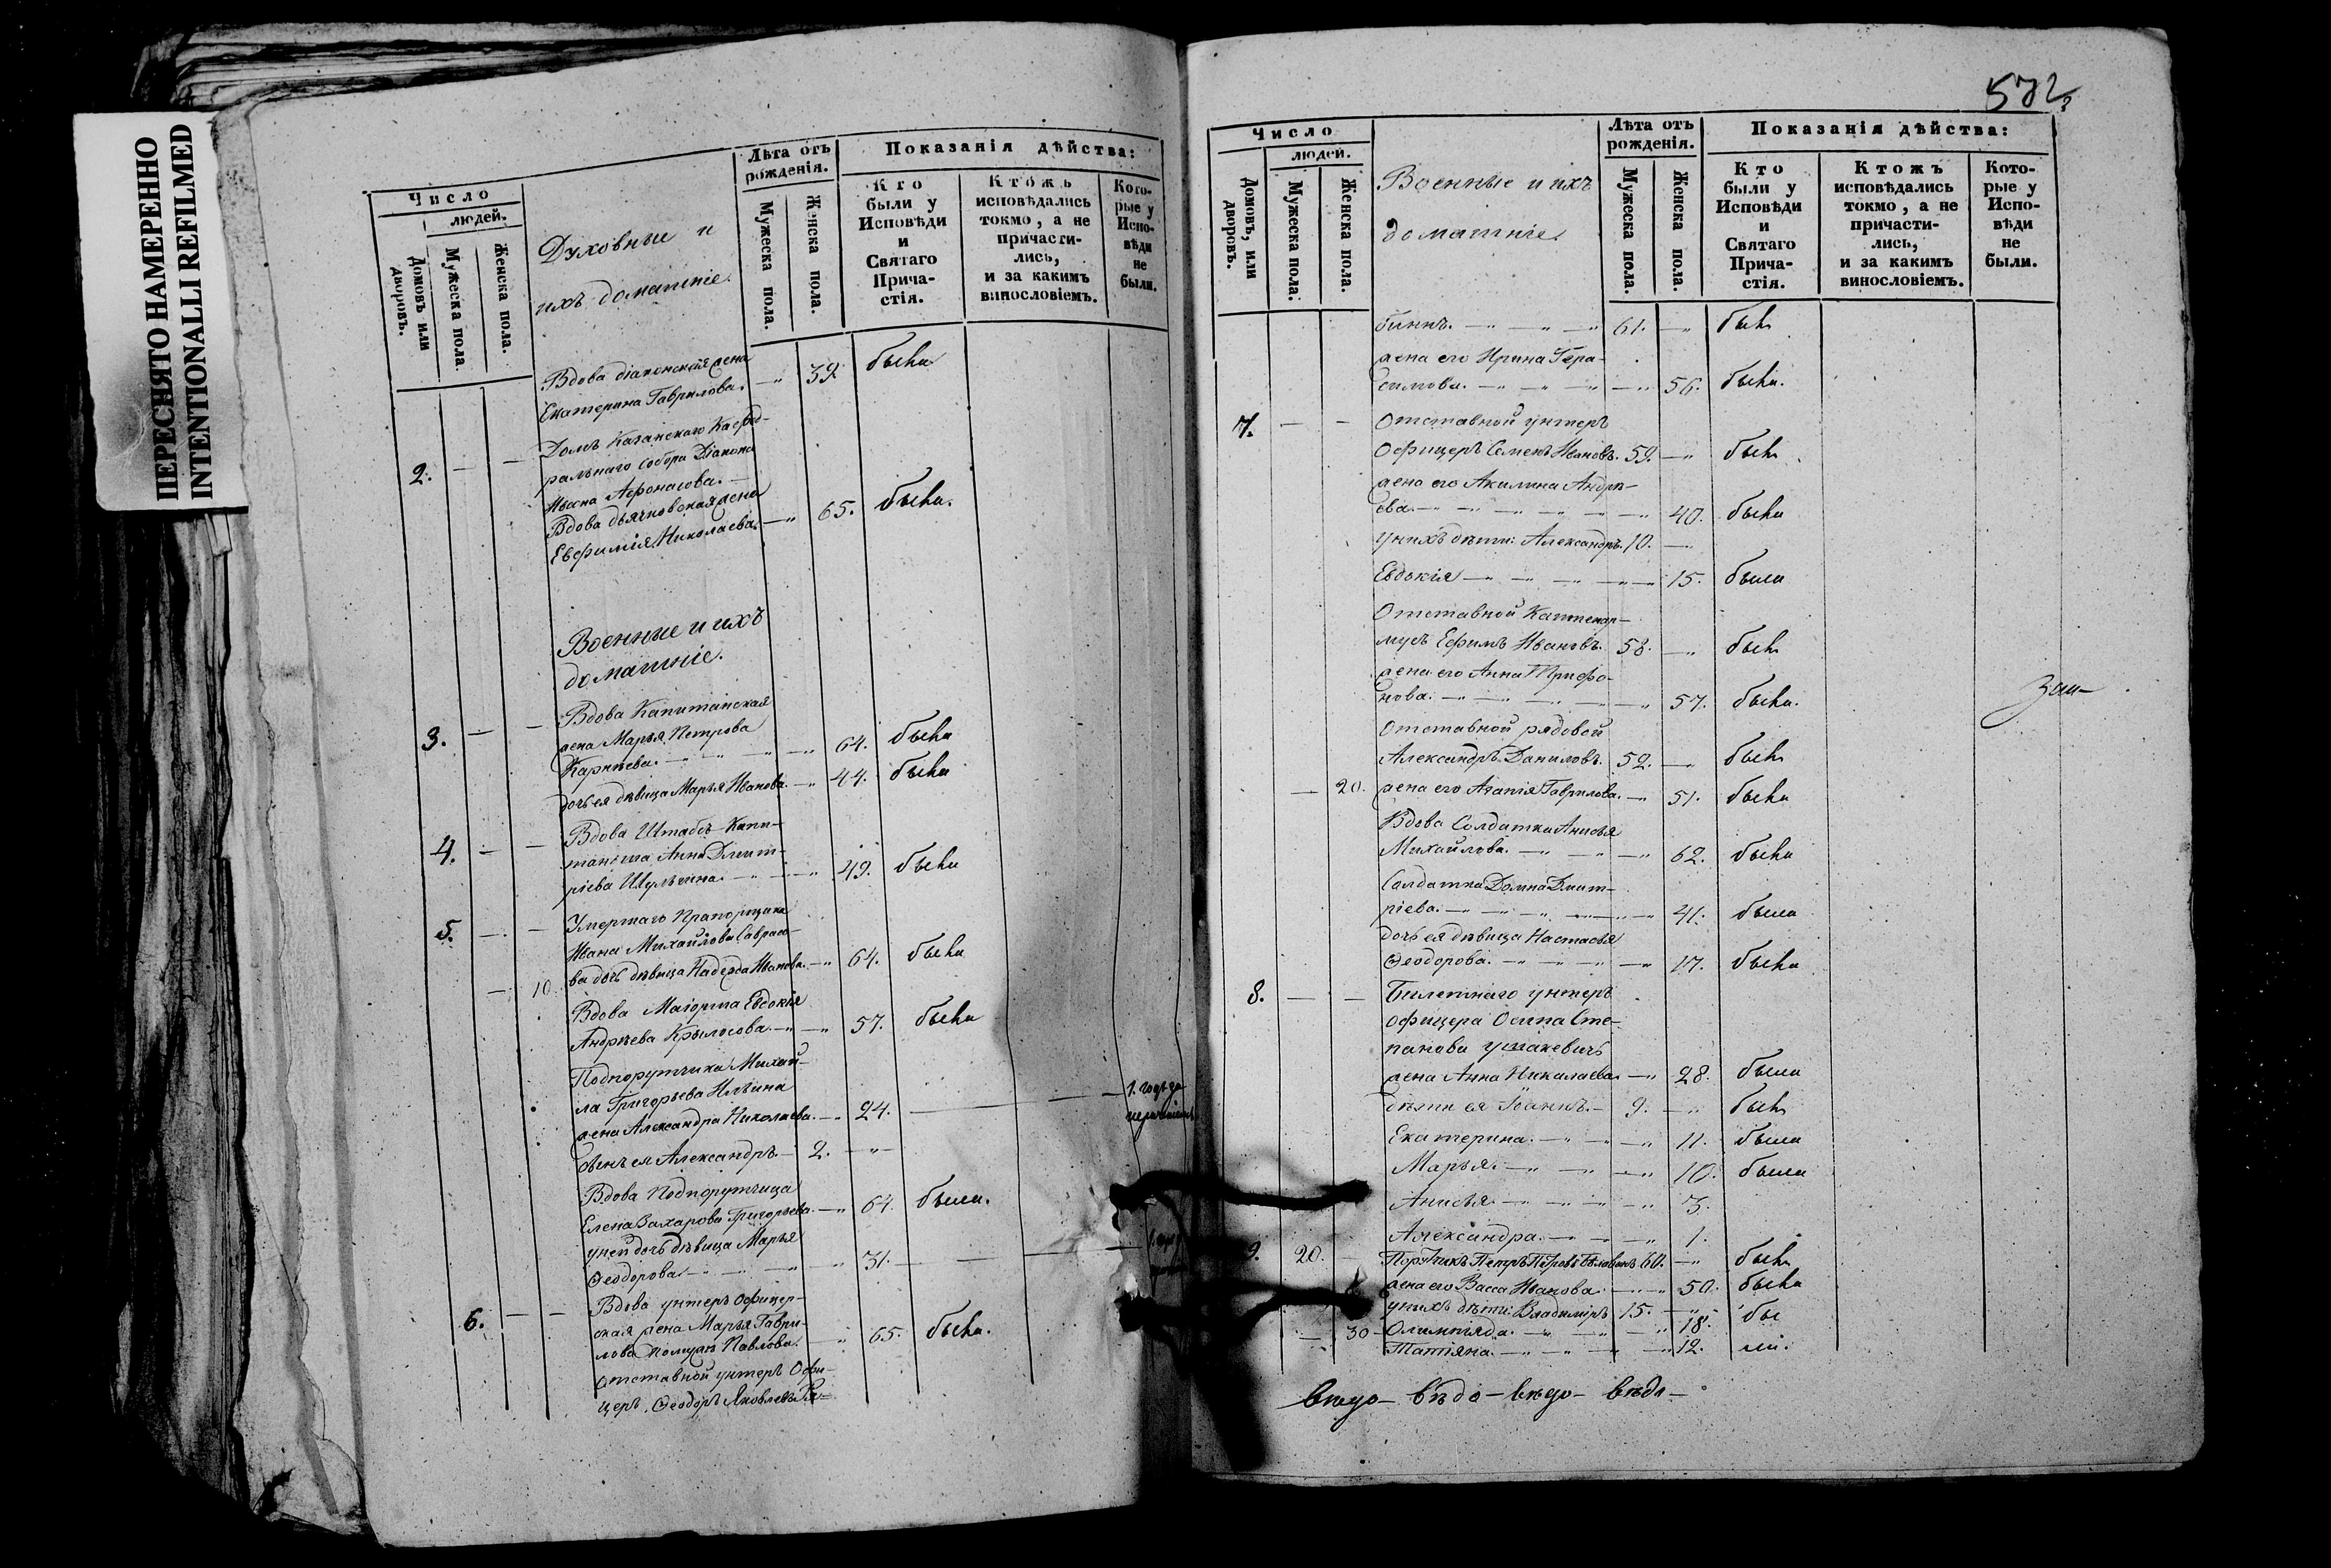 ПЕРЕСНЯТО НАМЕРЕННО
INTENTIONALLI REFILMED
Число
людей.
Домовъ или дворовъ.
Мужеска пола.
Женска пола.
Духовные и
ихъ домашніе.
Лѣта отъ рожденія.
Мужеска пола.
Женска пола.
Показанія дѣйства:
Кто были у Исповѣди и Святаго Причастія.
Ктожъ исповѣдались токмо, а не причастились, и за какимъ винословіемъ.
Которые у Исповѣди не были.
Вдова діаконская жена
Екатерина Гаврилова. — 39. была
2. — — Домъ Казанскаго Кафед-
ральнаго Собора Діакона
Ивана Афонасова. —
Вдова дьячковская жена
Евфимія Николаева — 65. была.
Военные и ихъ
домашніе.
3. — — Вдова Капитанская
жена Марья Петрова
Карнѣева. — 64. была
дочь ея дѣвица Марья Иванова — 44. была
4. — — Вдова Штабсъ-Капи-
танша Анна Дмит-
ріева — 49. была
5. — — Умершаго Прапорщика
Ивана Михайлова Саврасо-
— 10 ва дочь дѣвица Надежда Иванова — 64. была
Вдова Маіорша Евдокія
Андрѣева Крылосова — 57. была
Подпорутчика Михай-
ла Григорьева Ильина
жена Александра Николаева — 24. — 1. годъ по
сынъ ея Александръ. — 2. —
Вдова Подпорутчица
Елена Захарова Григорьева — 64. была.
у ней дочь дѣвица Марья
Ѳеодорова — 31. —
6. — — Вдова унтеръ офицер-
ская жена Марья Гаври-
лова Павлова. — 65. была.
Отставной унтеръ Офи-
церъ Ѳеодоръ Яковлевъ
572
Число
людей.
Домовъ, или дворовъ.
Мужеска пола.
Женска пола.
Военные и ихъ
домашніе.
Лѣта отъ рожденія.
Мужеска пола.
Женска пола.
Показанія дѣйства:
Кто были у Исповѣди и Святаго Причастія.
Ктожъ исповѣдались токмо, а не причастились, и за какимъ винословіемъ.
Которые у Исповѣди не были.
бинъ. — 61. — былъ
жена его Ирина Гера-
симова. — 56. была.
7. — — Отставной унтеръ
Офицеръ Семенъ Ивановъ. 59. — былъ
жена его Акилина Андрѣ-
ева. — 40. была
у нихъ дѣти: Александръ. 10. —
Евдокія — 15. была
Отставной Каптенар-
мусъ Ефимъ Ивановъ. 58. — былъ
жена его Анна Трифо-
нова. — 57. была.
Отставной рядовой
Александръ Даниловъ. 52. — былъ
— 20. жена его Агапія Гаврилова. — 51. была
Вдова Солдатка Анисья
Михайлова. — 62. была
Солдатка Домна Дмит-
ріева. — 41. была
дочь ея дѣвица Настасья
Ѳеодорова. — 17. была
8. — — Билетнаго унтеръ
офицера Осипа Сте-
панова
жена Анна Николаева — 28. была
дѣти ея Іоаннъ. — 9. — былъ
Екатерина. — 11. была
Марья. — 10. была
Анисья — 3.
Александра. — 1.
9. 20. Порутчикъ Петръ Петровъ 60. — былъ
жена его Васса Иванова. — 50. была
у нихъ дѣти: Владимиръ 15. — бы
— 30 Олимпіяда. — 18.
Татіяна. — 12. ли.